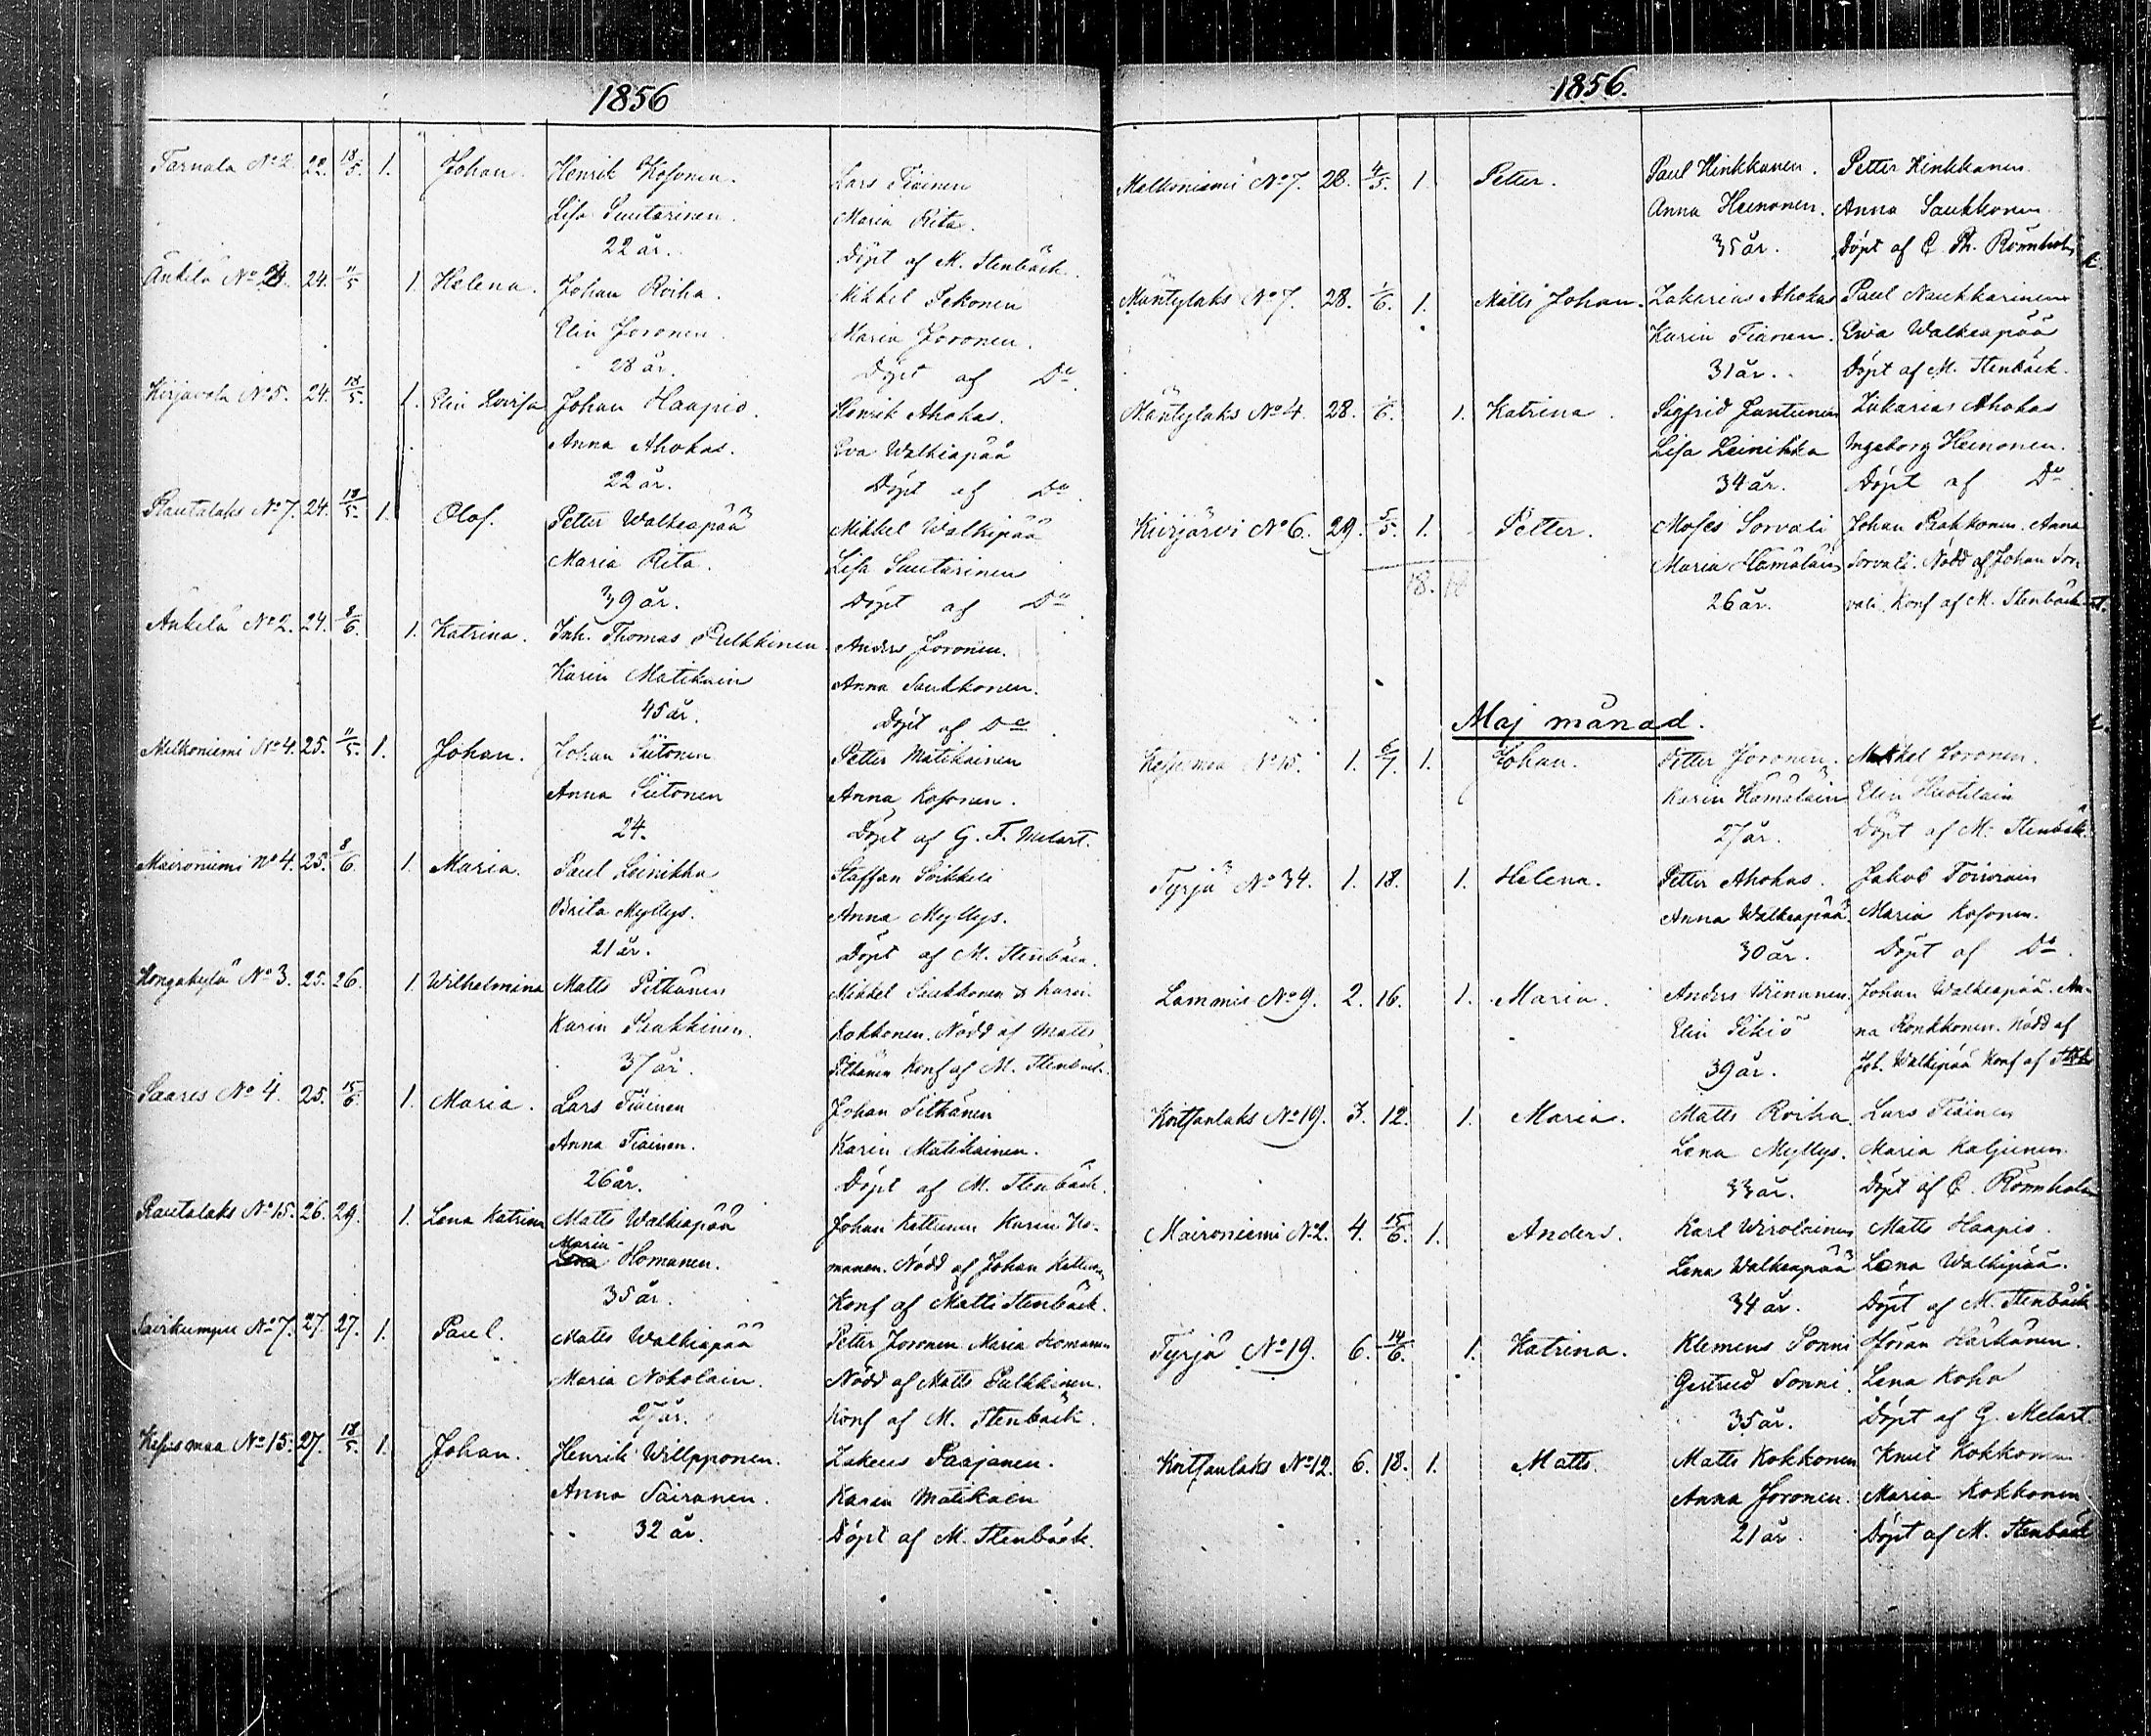 1856
Tarnala No 2. 22. 18/5. 1. Johan. Henrik Kosonen. Lars Tiainen
Lisa Suutarinen. Maria Rita.
22 år. Döpt af M. Stenbäck.
Änkilä No 24. 11/5 1 Helena. Johan Roiha. Mikkel Pekonen
Elin Joronen. Maria Joronen.
28 år. Döpt af Do
Kirjavala No 5. 24. 18/5. 1. Elin Lovisa Johan Haapio. Henrik Ahokas.
Anna Ahokas. Eva Walkiapää
22 år. Döpt af Do.
Rautalaks No 7. 24. 18/5. 1. Olof. Petter Walkeapää Mikkel Walkipää
Maria Rita. Lisa Suutarinen
39 år. Döpt af Do
Änkilä No 2. 24. 8/6. 1. Katrina. Inh. Thomas Pulkkinen Anders Joronen.
Karin Matikain Anna Saukkonen.
45 år. Döpt af Do
Melkoniemi No 4. 25. 11/5. 1. Johan. Johan Siitonen Petter Matikainen
Anna Siitonen Anna Kosonen.
24. Döpt af G. F. Melart.
Maironiemi No 4. 25. 8/6. 1. Maria. Paul Leinikka Staffan Soikkeli
Brita Myllys. Anna Myllys.
21 år. Döpt af M. Stenbäck.
Kongakylä No 3. 25. 26. 1 Wilhelmina Matts Pitkänen Mikkel Saukkonen & Karin
Karin Pukkinen. Kokkonen. Nödd af Matts
37 år. Pitkänen Konf af M. Stenbäck.
Saares No 4. 25. 15/6. 1. Maria. Lars Tiainen Johan Pitkänen
Anna Tiainen. Karin Matikainen.
26 år. Döpt af M. Stenbäck.
Rautalaks No 15. 26. 29. 1. Lena Katrina Matts Walkiapää Johan Kettunen Karin Ho-
Maria
Lena Homanen. manen. Nödd af Johan Kettunen
35 år. Konf af Matts Stenbäck.
Savikumpu No 7. 27. 27. 1. Paul. Matts Walkiapää Petter Joronen Maria Homanen
Maria Nokolain. Nödd af Matts Pulkkinen.
27 år. Konf af M. Stenbäck.
Kesusmaa No 15. 27. 18/5. 1. Johan. Henrik Willpponen. Zakeus Paajanen.
Anna Sairanen. Karin Matikain
32 år. Döpt af M. Stenbäck.
1856.
Melkoniemi No 7. 28. 4/5. 1. Petter. Paul Hinkkanen. Petter Hinkkanen.
Anna Heinonen. Anna Saukkonen
35 år. Döpt af C. Th. Rönnholm
Mäntylaks No 7. 28. 1/6. 1. Matts Johan. Zakarias Ahokas Paul Naukkarinen
Karin Tiainen. Ewa Walkeapää
31 år. Döpt af M. Stenbäck.
Mäntylaks No 4. 28. 1/6. 1. Katrina. Sigfrid Juntunen Zakarias Ahokas
Lisa Leinikka Ingeborg Heinonen.
34 år. Döpt af Do.
Kiirjärvi No 6. 29. 5/5. 1. Petter. Moses Sorvali Johan Pukkonen. Anna
Maria Hämäläin Sorvali. Nödd af Johan Sor-
26 år. vali. Konf af M. Stenbäck
18.
Maj månad.
Kesusmaa No 15. 1. 6/7. 1. Johan. Petter Joronen. Mikkel Joronen.
Karin Hämäläin Elin Huotilain
27 år. Döpt af M. Stenbäck.
Tyrjä No 34. 1. 18. 1. Helena. Petter Ahokas. Jakob Toivonen
Anna Walkeapää. Maria Kosonen.
30 år. Döpt af Do.
Lammis No 9. 2. 16. 1. Maria. Anders Wiinanen. Johan Walkeapää. An-
Elin Pikiö na Ronkkonen. Nödd af
39 år. Joh. Walkipää Konf af
Koitsanlaks No 19. 3. 12. 1. Maria. Matts Roiha. Lars Tiainen
Lena Myllys. Maria Kaljunen.
33 år. Döpt af C. Rönnholm
Maironiemi No 2. 4. 15/6. 1. Anders. Karl Wirolainen Matts Haapio.
Lena Walkeapää Lena Walkipää.
34 år. Döpt af M. Stenbäck
Tyrjä No 19. 6. 14/6. 1. Katrina. Klemens Sonni Göran Härkänen.
Gertrud Sonni. Lena Koho
35 år. Döpt af G. Melart.
Koitsanlaks No 12. 6. 18. 1. Matts. Matts Kokkonen Knut Kokkonen
Anna Joronen. Maria Kokkonen
21 år. Döpt af M. Stenbäck